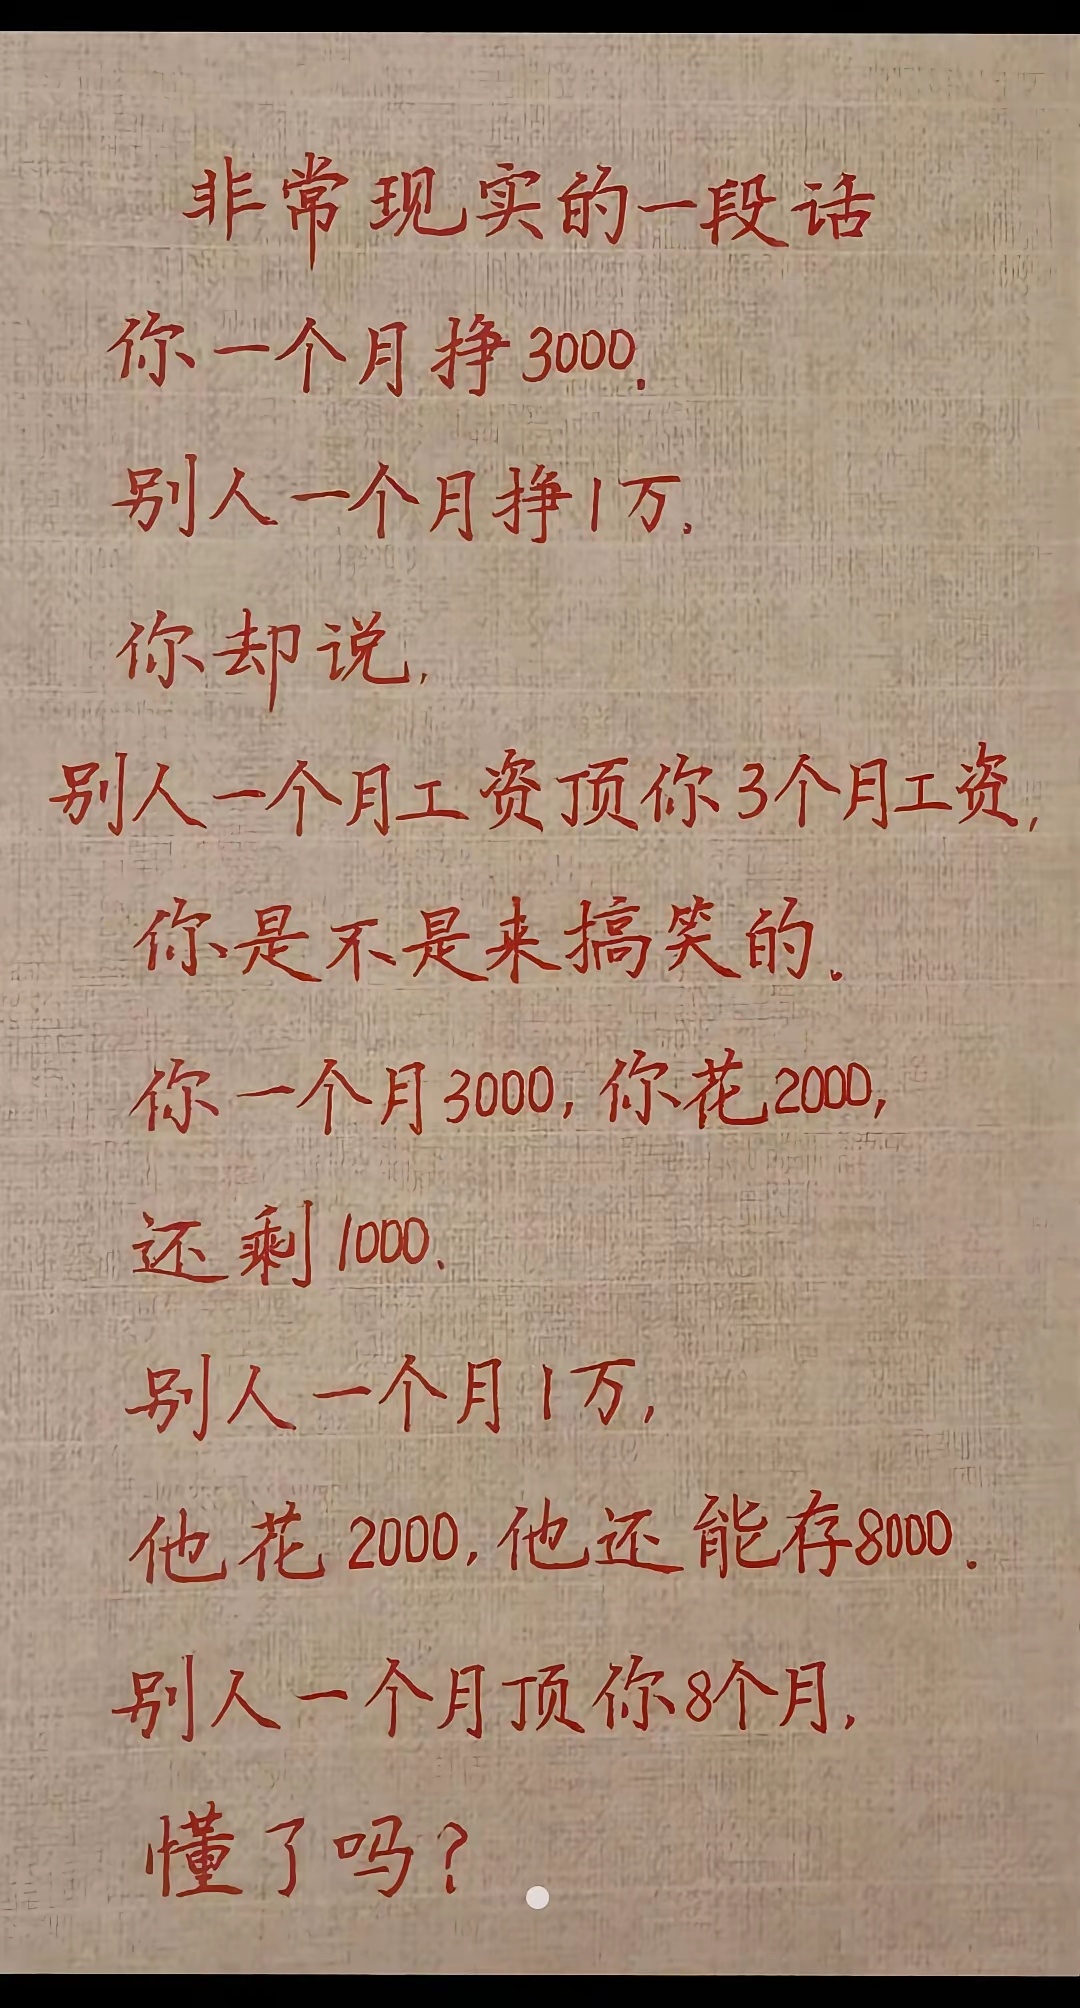 非常现实的一段话
你一个月挣3000.
别人一个月挣1万.
你却说,
别人一个月工资顶你3个月工资,
你是不是来搞笑的.
你一个月3000,你花2000,
还剩1000.
别人一个月1万,
他花2000,他还能存8000.
别人一个月顶你8个月,
懂了吗?